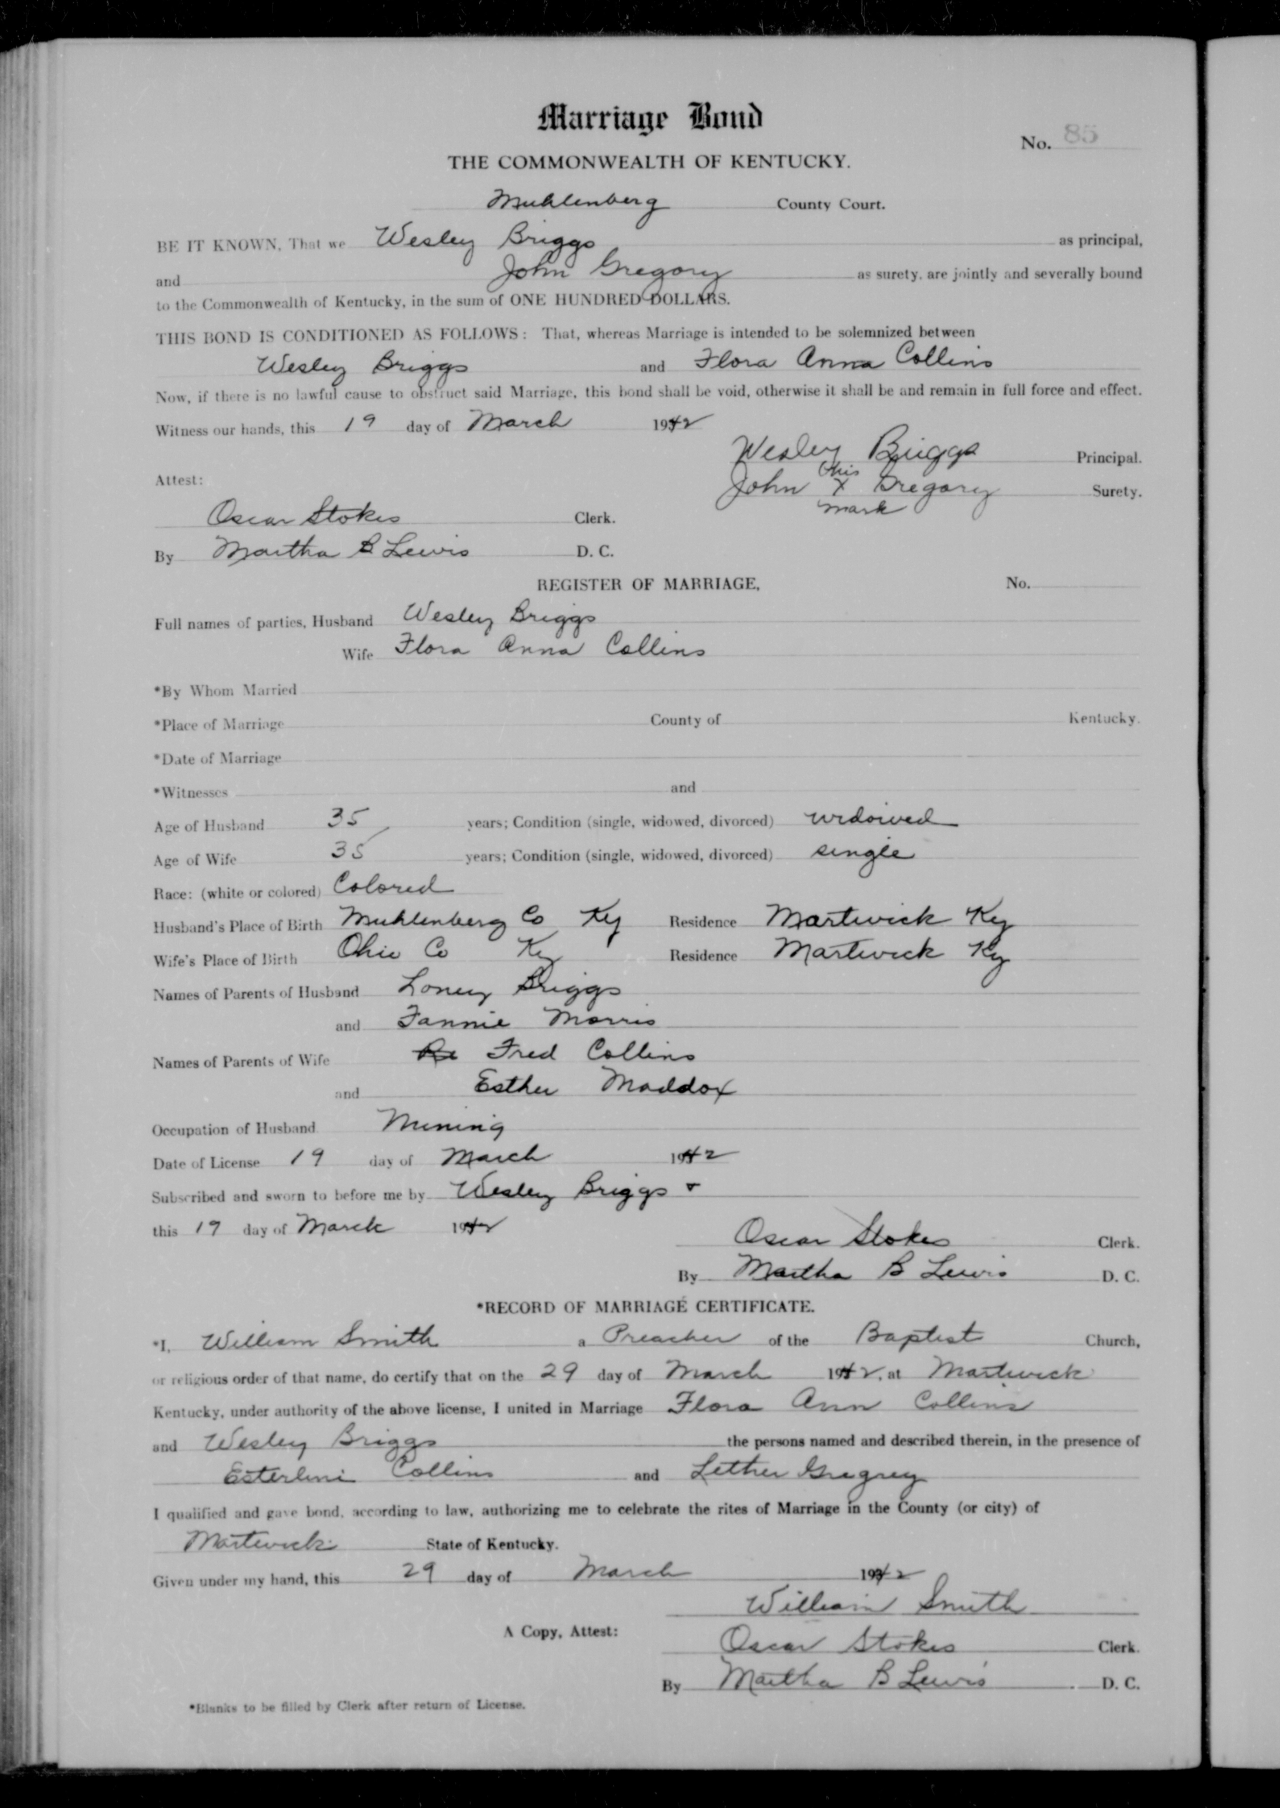 Marriage Bond
No. 85
THE COMMONWEALTH OF KENTUCKY.
Muhlenberg County Court.
BE IT KNOWN, That we Wesley Briggs as principal,
and John Gregory as surety, are jointly and severally bound
to the Commonwealth of Kentucky, in the sum of ONE HUNDRED DOLLARS.
THIS BOND IS CONDITIONED AS FOLLOWS: That, whereas Marriage is intended to be solemnized between
Wesley Briggs and Flora Anna Collins
Now, if there is no lawful cause to obstruct said Marriage, this bond shall be void, otherwise it shall be and remain in full force and effect.
Witness our hands, this 19 day of March 1942
Wesley Briggs Principal.
Attest: John his X mark Gregory Surety.
Oscar Stokes Clerk.
By Martha B Lewis D. C.
REGISTER OF MARRIAGE, No.
Full names of parties, Husband Wesley Briggs
Wife Flora Anna Collins
*By Whom Married
*Place of Marriage County of Kentucky.
*Date of Marriage
*Witnesses and
Age of Husband 35 years; Condition (single, widowed, divorced) widowed
Age of Wife 35 years; Condition (single, widowed, divorced) single
Race: (white or colored) Colored
Husband's Place of Birth Muhlenberg Co Ky Residence Martwick Ky
Wife's Place of Birth Ohio Co Ky Residence Martwick Ky
Names of Parents of Husband Loney Briggs
and Fannie Morris
Names of Parents of Wife Fred Collins
and Esther Maddox
Occupation of Husband Mining
Date of License 19 day of March 1942
Subscribed and sworn to before me by Wesley Briggs
this 19 day of March 1942
Oscar Stokes Clerk.
By Martha B Lewis D. C.
*RECORD OF MARRIAGE CERTIFICATE.
*I, William Smith a Preacher of the Baptist Church,
or religious order of that name, do certify that on the 29 day of March 1942, at Martwick
Kentucky, under authority of the above license, I united in Marriage Flora Ann Collins
and Wesley Briggs the persons named and described therein, in the presence of
Esterleni Collins and Lether Gregrey
I qualified and gave bond, according to law, authorizing me to celebrate the rites of Marriage in the County (or city) of
Martwick State of Kentucky.
Given under my hand, this 29 day of March 1942
William Smith
A Copy, Attest: Oscar Stokes Clerk.
By Martha B Lewis D. C.
*Blanks to be filled by Clerk after return of License.